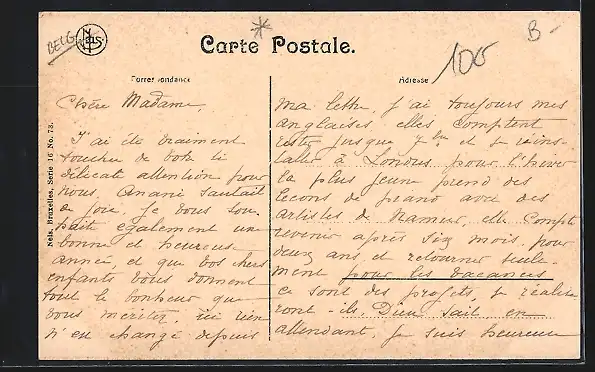 BELG
Nels
Carte Postale.
B-
100
Correspondance
Adresse
Nels, Bruxelles, Serie 16 No. 73.
Chère Madame,
J'ai été vraiment
touchée de votre si
délicate attention pour
nous, sautait
de joie. Je vous sou-
haite également une
bonne et heureuse
année et que vos chers
enfants vous donnent
tout le bonheur que
vous méritez. ici rien
n'est changé depuis
ma lettre, j'ai toujours mes
anglaises, elles comptent
rester jusque et se réins-
taller à Londres pour l'hiver
la plus jeune prend des
leçons de piano avec des
artistes de Namur, elle compte
revenir après six mois, pour
deux ans, et retourner seule-
ment pour les vacances
ce sont des projets, se réalise-
ront-ils, Dieu sait en
attendant, je suis heureuse